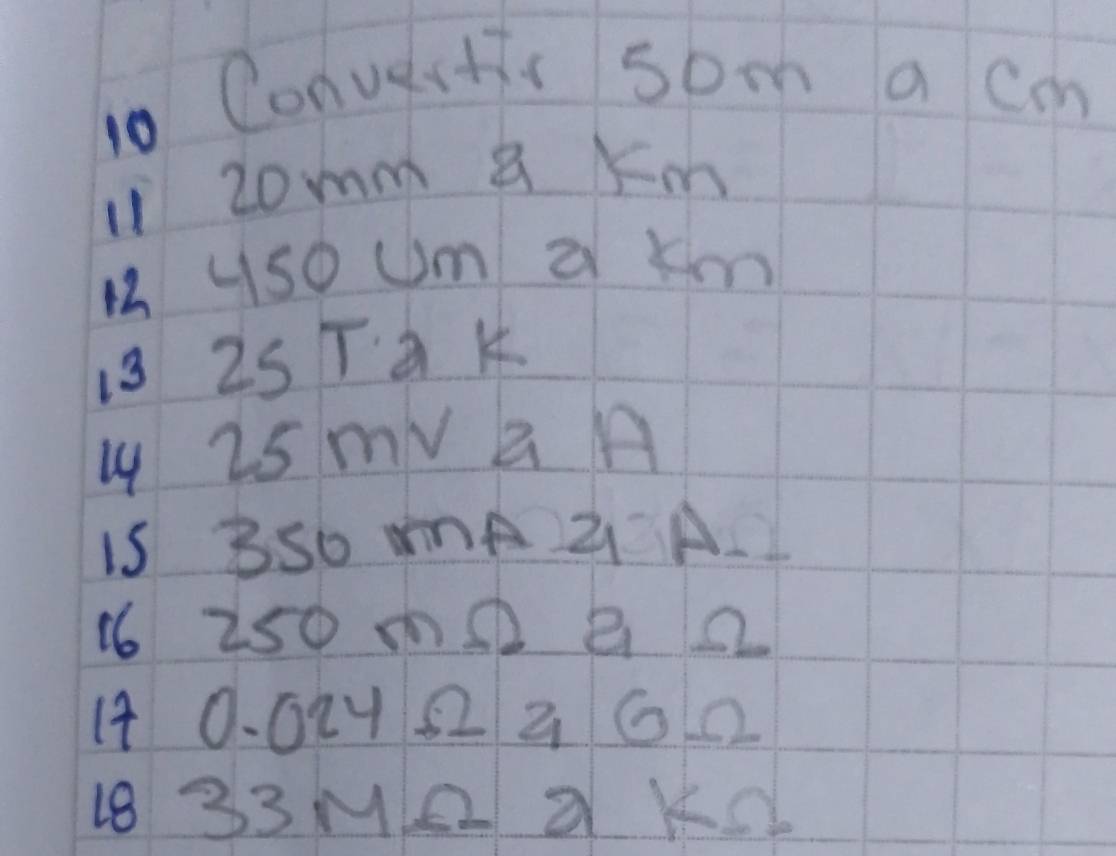 10 Convertir 50m a Cm
11 20mm a Km
12 450 Um a Km
13 25 T a K
14 25 mV a A
15 350 mA a A
16 250 mΩ a Ω
17 0.024 Ω a GΩ
18 33MΩ a KΩ